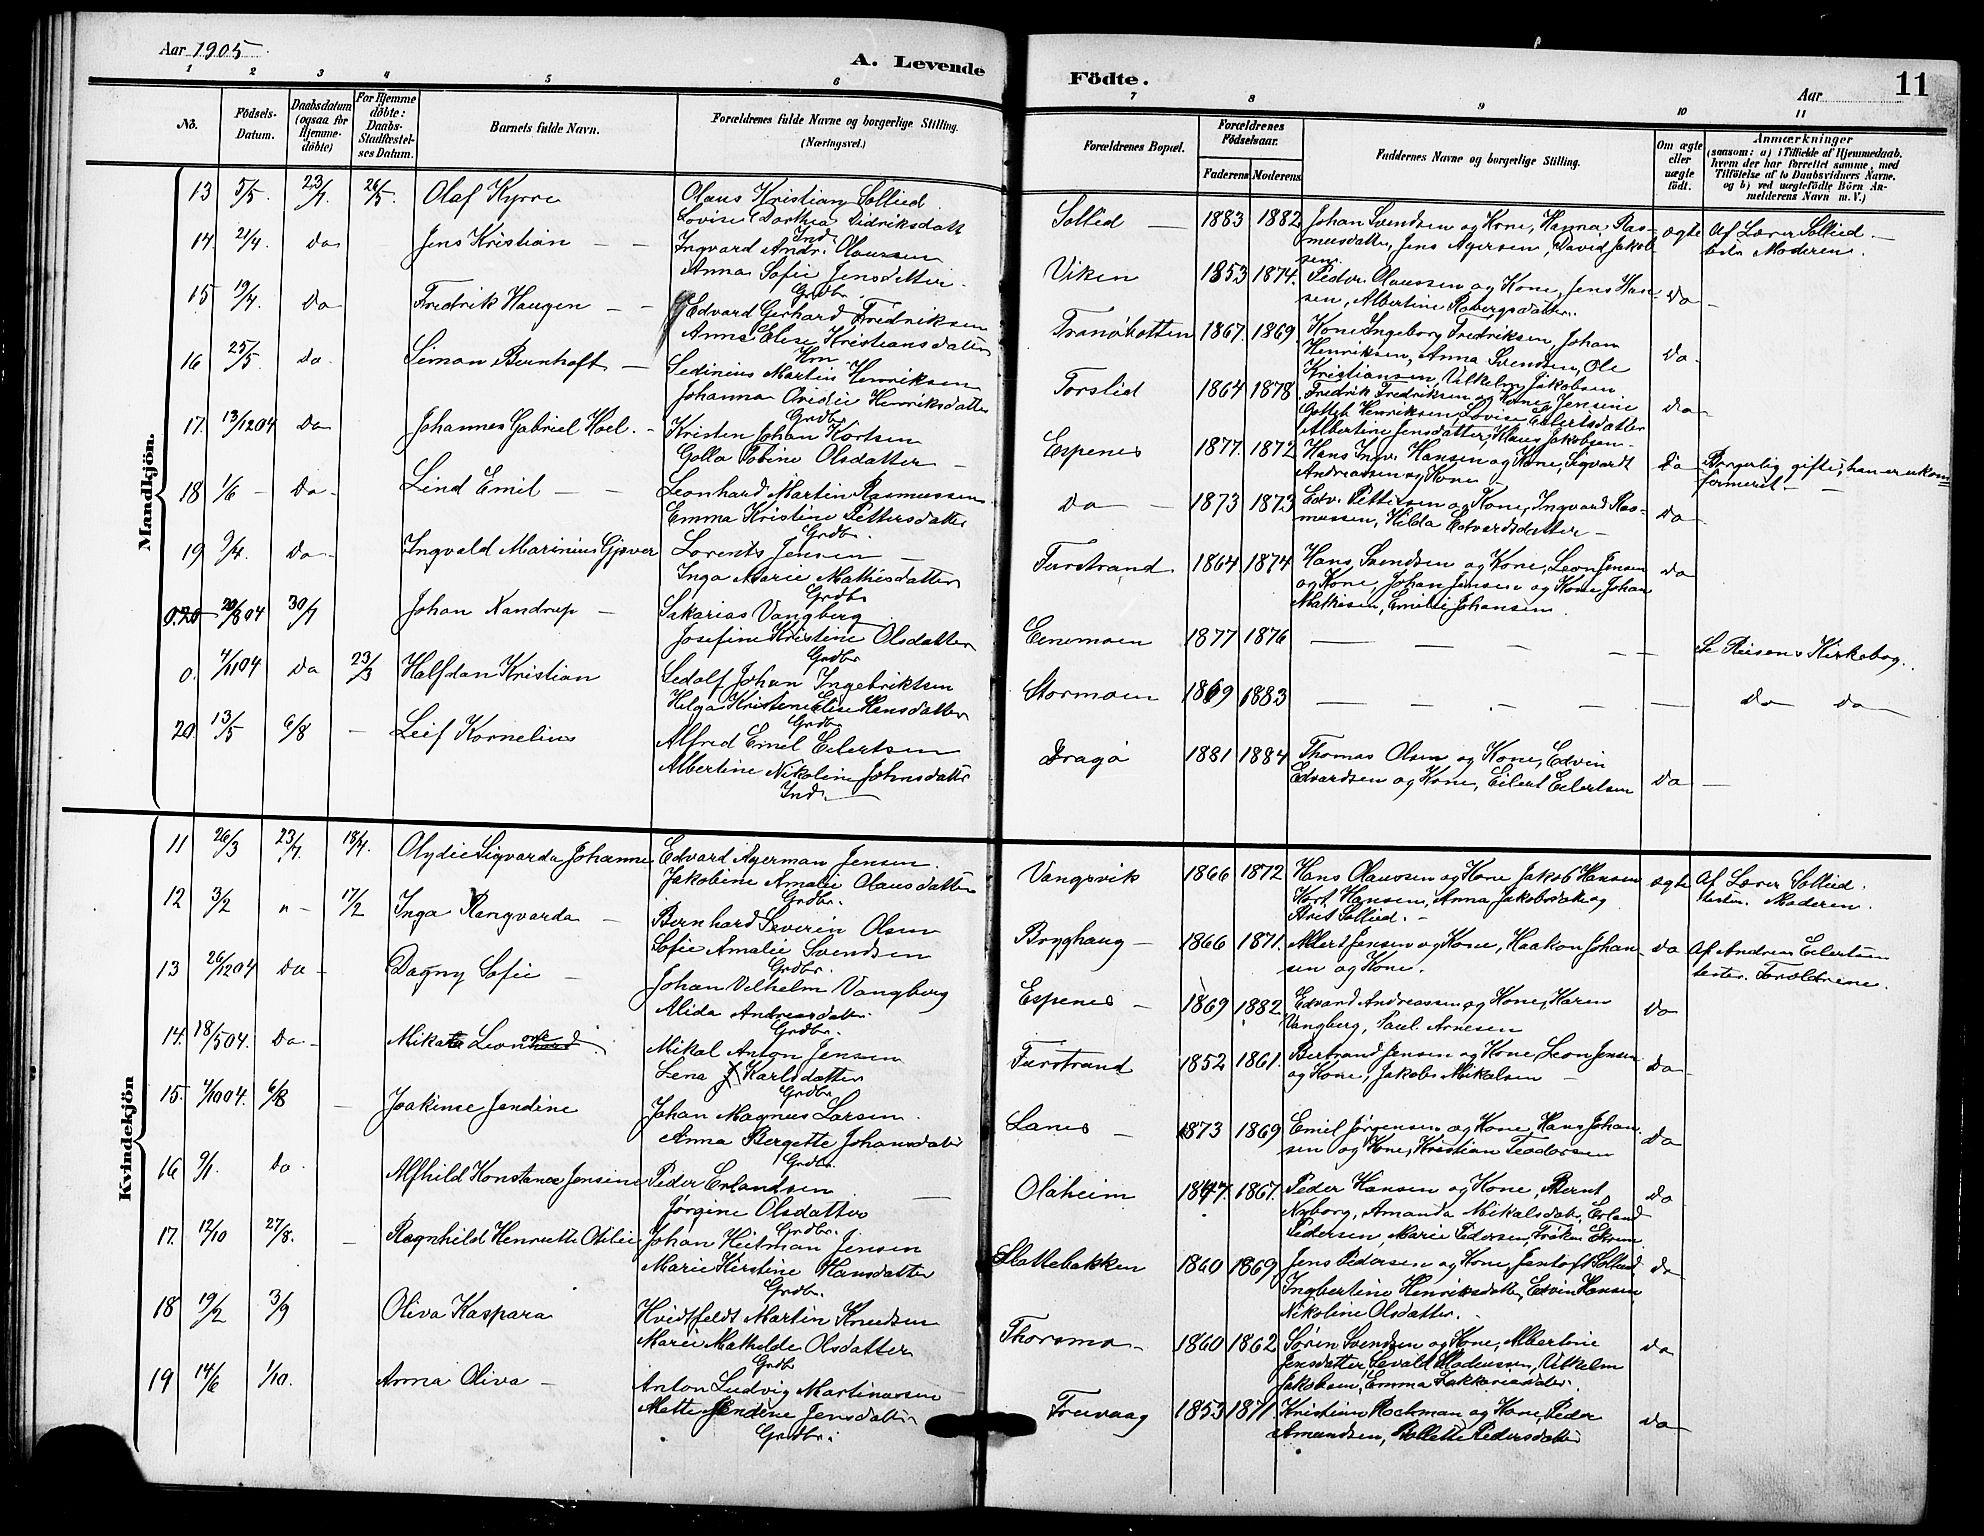 Aar 1905
A. Levende
Födte.
Aar
11
1 2 3 4 5 6 7 8 9 10 11
No.
Födsels-
Datum.
Daabsdatum
(ogsaa for
Hjemme-
döbte)
For Hjemme
döbte:
Daabs-
Stadfæstel-
ses Datum.
Barnets fulde Navn.
Forældrenes fulde Navne og borgerlige Stilling.
(Næringsvei.)
Forældrenes Bopæl.
Forældrenes
Födselsaar.
Faderens
Moderens.
Faddernes Navne og borgerlige Stilling.
Om ægte
eller
uægte
födt.
Anmærkninger
(saasom: a) i Tilfælde af Hjemmedaab,
hvem der har forrettet samme, med
Tilföielse af to Daabsvidners Navne,
og b) ved uægtefödte Börn An-
melderens Navn m. V.)
Mandkjön.
13 5/5. 23/7. 26/5 Olaf Kyrre
Olaus Kristian Sollied
Lovise Dorthea Didriksdatt
Ind.
Sollid — 1883 1882
Johan Svendsen og Kone, Hanna Ras-
musdatter, Jens Agersen, David Jakob
sen.
ægte
Af Lærer Sollied —
test. Moderen.
14. 21/4. Do Jens Kristian — —
Ingvard Andr. Olaussen
Anna Sofie Jensdatter
Grdbr.
Viken 1853 1874.
Peder Olaussen og Kone, Jens Han-
sen, Albertine Robergsdatter.
do —
15 19/4. Do Fredrik Haugen — —
Edvard Gerhard Fredriksen
Anna Elise Kristiansdatter
Hm.
Tranöbotten 1867. 1869.
Kone Ingeborg Fredriksen, Johan
Henriksen, Anna Svendsen, Ole
Kristiansen, Vilhelm Jakobsen
do —
16 25/5. Do. Simon Bernhoft —
Sedinius Martin Henriksen
Johanna Ovidie Henriksdatter
Grdbr.
Forslid 1864 1878
Fredrik Fredriksen og Kone, Jensine
Gottlb Henriksen, Lovise Eilertsdatter
Albertine Jensdatter, Klaus Jakobsen —
do —
17. 13/12 04 Do Johannes Gabriel Hoel. —
Kristen Johan Kortsen
Golla Tobine Olsdatter —
Espenes 1877. 1872
Hans Ingv. Hansen og Kone, Sigvardt
Andreassen og Kone —
do
Borgerlig gifte; han er ukon
firmeret — —
18 1/6 — Do — Lind Emil — —
Leonhard Martin Rasmussen
Emma Kristine Pettersdatter
Grdbr.
do — 1873 1873
Edv. Pettersen og Kone, Ingvard Ras-
mussen, Hilda Edvardsdatter —
do —
19 9/4. Do — Ingvald Marinius Gjøver
Lorents Jensen —
Inga Marie Mathisdatter
Grdbr
Furstrand 1864 1874
Hans Svendsen og Kone, Leon Jensen
og Kone, Johan Jensen og Kone Johan
Mathisen, Emilie Johansen.
do
0. 20 20/8 04 30/7 Johan Nandrup —
Sakarias Vangberg
Josefine Kristine Olsdatter
Grdbr
Eenemoen 1877 1876 — — — — —
Se Reisens Kirkebog.
0. 4/11 04 Do 23/3 Halfdan Kristian
Sedolf Johan Ingebriktsen
Helga Kristine Elise Hansdatter
Grdbr
Stormoen 1869 1883 — — — — —
do do —
20 13/5 6/8 — Leif Kornelius
Alfred Emil Eilertsen
Albertine Nikoline Johnsdatter
Ind.
Dragö 1881 1884
Thomas Olsen og Kone, Edvin
Edvardsen og Kone, Eilert Eilertsen
do —
Kvindekjön
11 26/3 23/7. 18/4. Olydie Sigvarda Johanne
Edvard Agerman Jensen.
Jakobine Amalie Olausdatter
Grdbr.
Vangsvik 1866 1872
Hans Olaussen og Kone Jakob Hansen
Kort Hansen, Anna Jakobsdatter og
Aret Sollied. —
ægte
Af Lærer Sollied.
testes. Moderen.
12 3/2 " — 17/2 Inga Rangvarda —
Bernhard Severin Olsen
Sofie Amalie Svendsen
Grdbr.
Bryghaug — 1866 1871.
Allert Jensen og Kone, Haakon Johan-
sen og Kone.
do
Af Andreas Eilertsen
testes. Forældrene.
13 26/12 04 Do — Dagny Sofie —
Johan Vilhelm Vangberg
Alida Andreasdatter
Grdbr.
Espenes — 1869 1882
Edvard Andreassen og Kone, Karen
Vangberg, Paul Arnesen
do
14. 18/5 04. Do — Mikala Leonhard
Mikal Anton Jensen
Lena J. Karlsdatter
Grdbr.
Furstrand 1852 1861.
Bertrand Jensen og Kone Leon Jensen
og Kone, Jakobs Mikalsen —
do —
15. 4/10 04. 6/8 — Joakime Jendine
Johan Magnus Larsen.
Anna Bergette Johansdatter
Grdbr.
Lanes — 1873 1869
Emil Jørgensen og Kone, Hans Johan-
sen og Kone, Kristian Teodorsen
do
16 9/1. Do. Alfhild Konstance Jensine
Peder Erlandsen —
Jørgine Olsdatter
Grdbr.
Olaheim 1847. 1867.
Peder Hansen og Kone, Bernt
Nyborg, Amanda Mikalsdatter, Erland
Pedersen, Marie Pedersen, Frøken Ekrem
do
17. 12/10 27/8. — Ragnhild Henriette Otilie
Johan Heitman Jensen
Marie Kirstine Hansdatter
Grdbr.
Slattebakken 1860 1869
Jens Pedersen og Kone, Jentoft Sollied
Ingbertine Henriksdatter, Edvin Hansen
Nikoline Olsdatter —
do
18 19/2 3/9 Oliva Kaspara
Hvidtfeldt Martin Knudsen
Marie Mathilde Olsdatter
Grdb
Thorsmo — 1860 1862
Søren Svendsen og Kone, Albertine
Jensdatter, Sevald Madeussen, Vilhelm
Jakobsen, Emma Sakkariasdatter.
do
19 14/6 1/10. Anna Oliva —
Anton Ludvig Martinussen
Mette Jendine Jensdatter
Grdbr.
Trevaag 1853 1871.
Kristian Rochman og Kone, Peder
Amundsen, Bollette Pedersdatter
do —